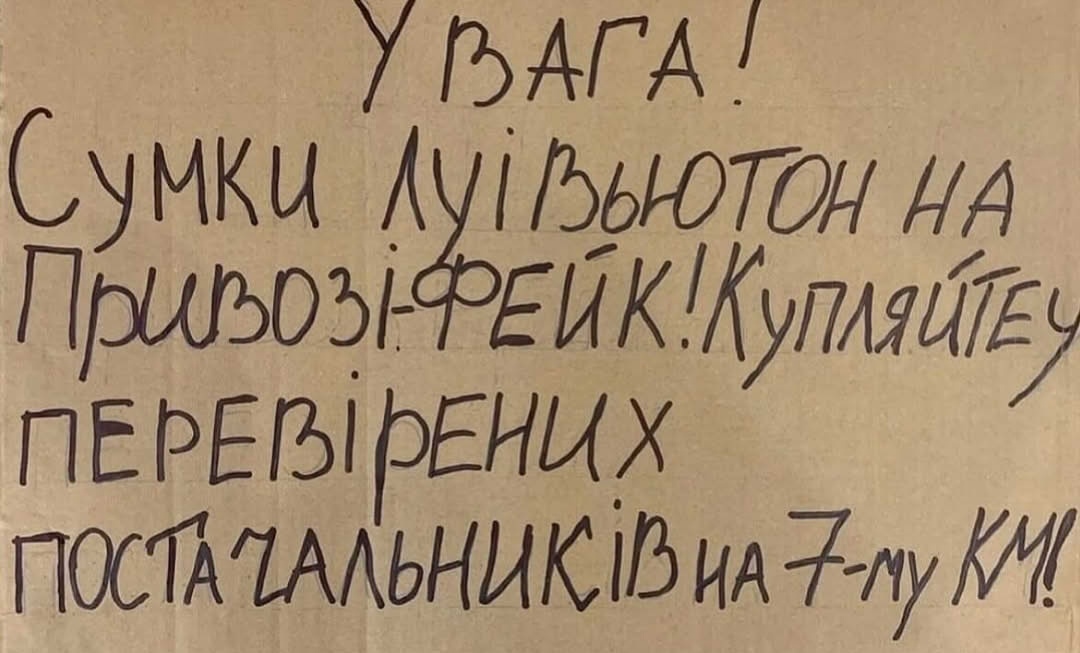 УВАГА!
Сумки Луі Вьютон на
Привозі-фейк! Купляйте у
перевірених
постачальників на 7-му км!